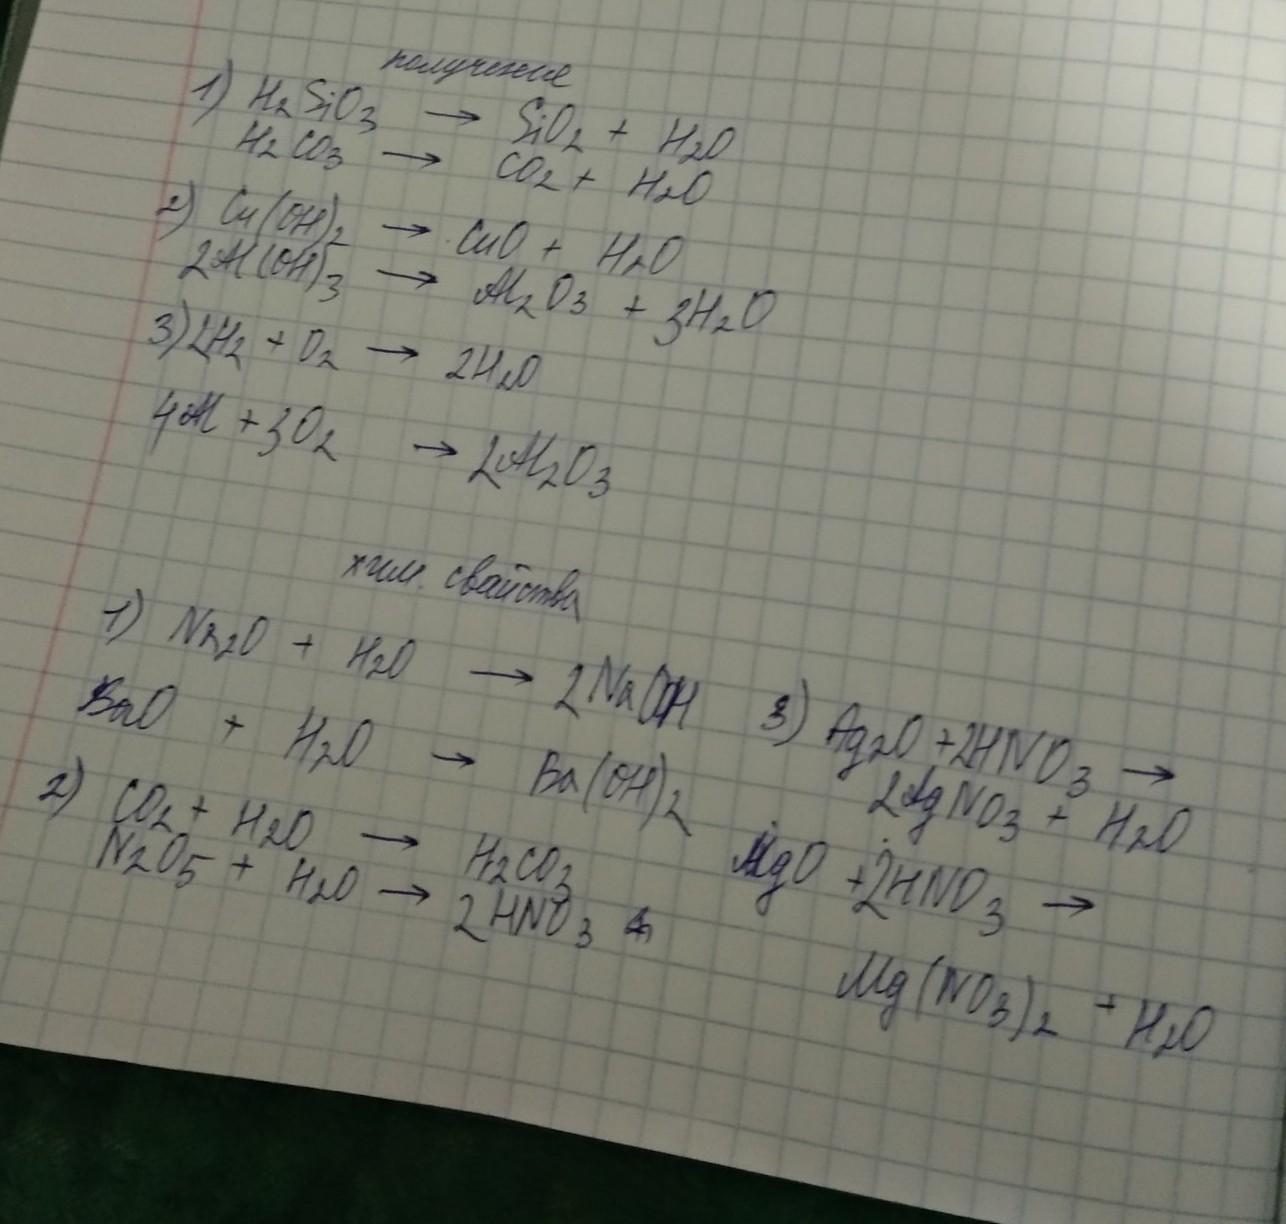 получение
1) H₂SiO₃ → SiO₂ + H₂O
H₂CO₃ → CO₂ + H₂O
2) Cu(OH)₂ → CuO + H₂O
2Al(OH)₃ → Al₂O₃ + 3H₂O
3) 2H₂ + O₂ → 2H₂O
4Al + 3O₂ → 2Al₂O₃
хим. свайства
1) Na₂O + H₂O → 2NaOH
BaO + H₂O → Ba(OH)₂
2) CO₂ + H₂O → H₂CO₃
N₂O₅ + H₂O → 2HNO₃
3) Ag₂O + 2HNO₃ →
2AgNO₃ + H₂O
MgO + 2HNO₃ →
Mg(NO₃)₂ + H₂O